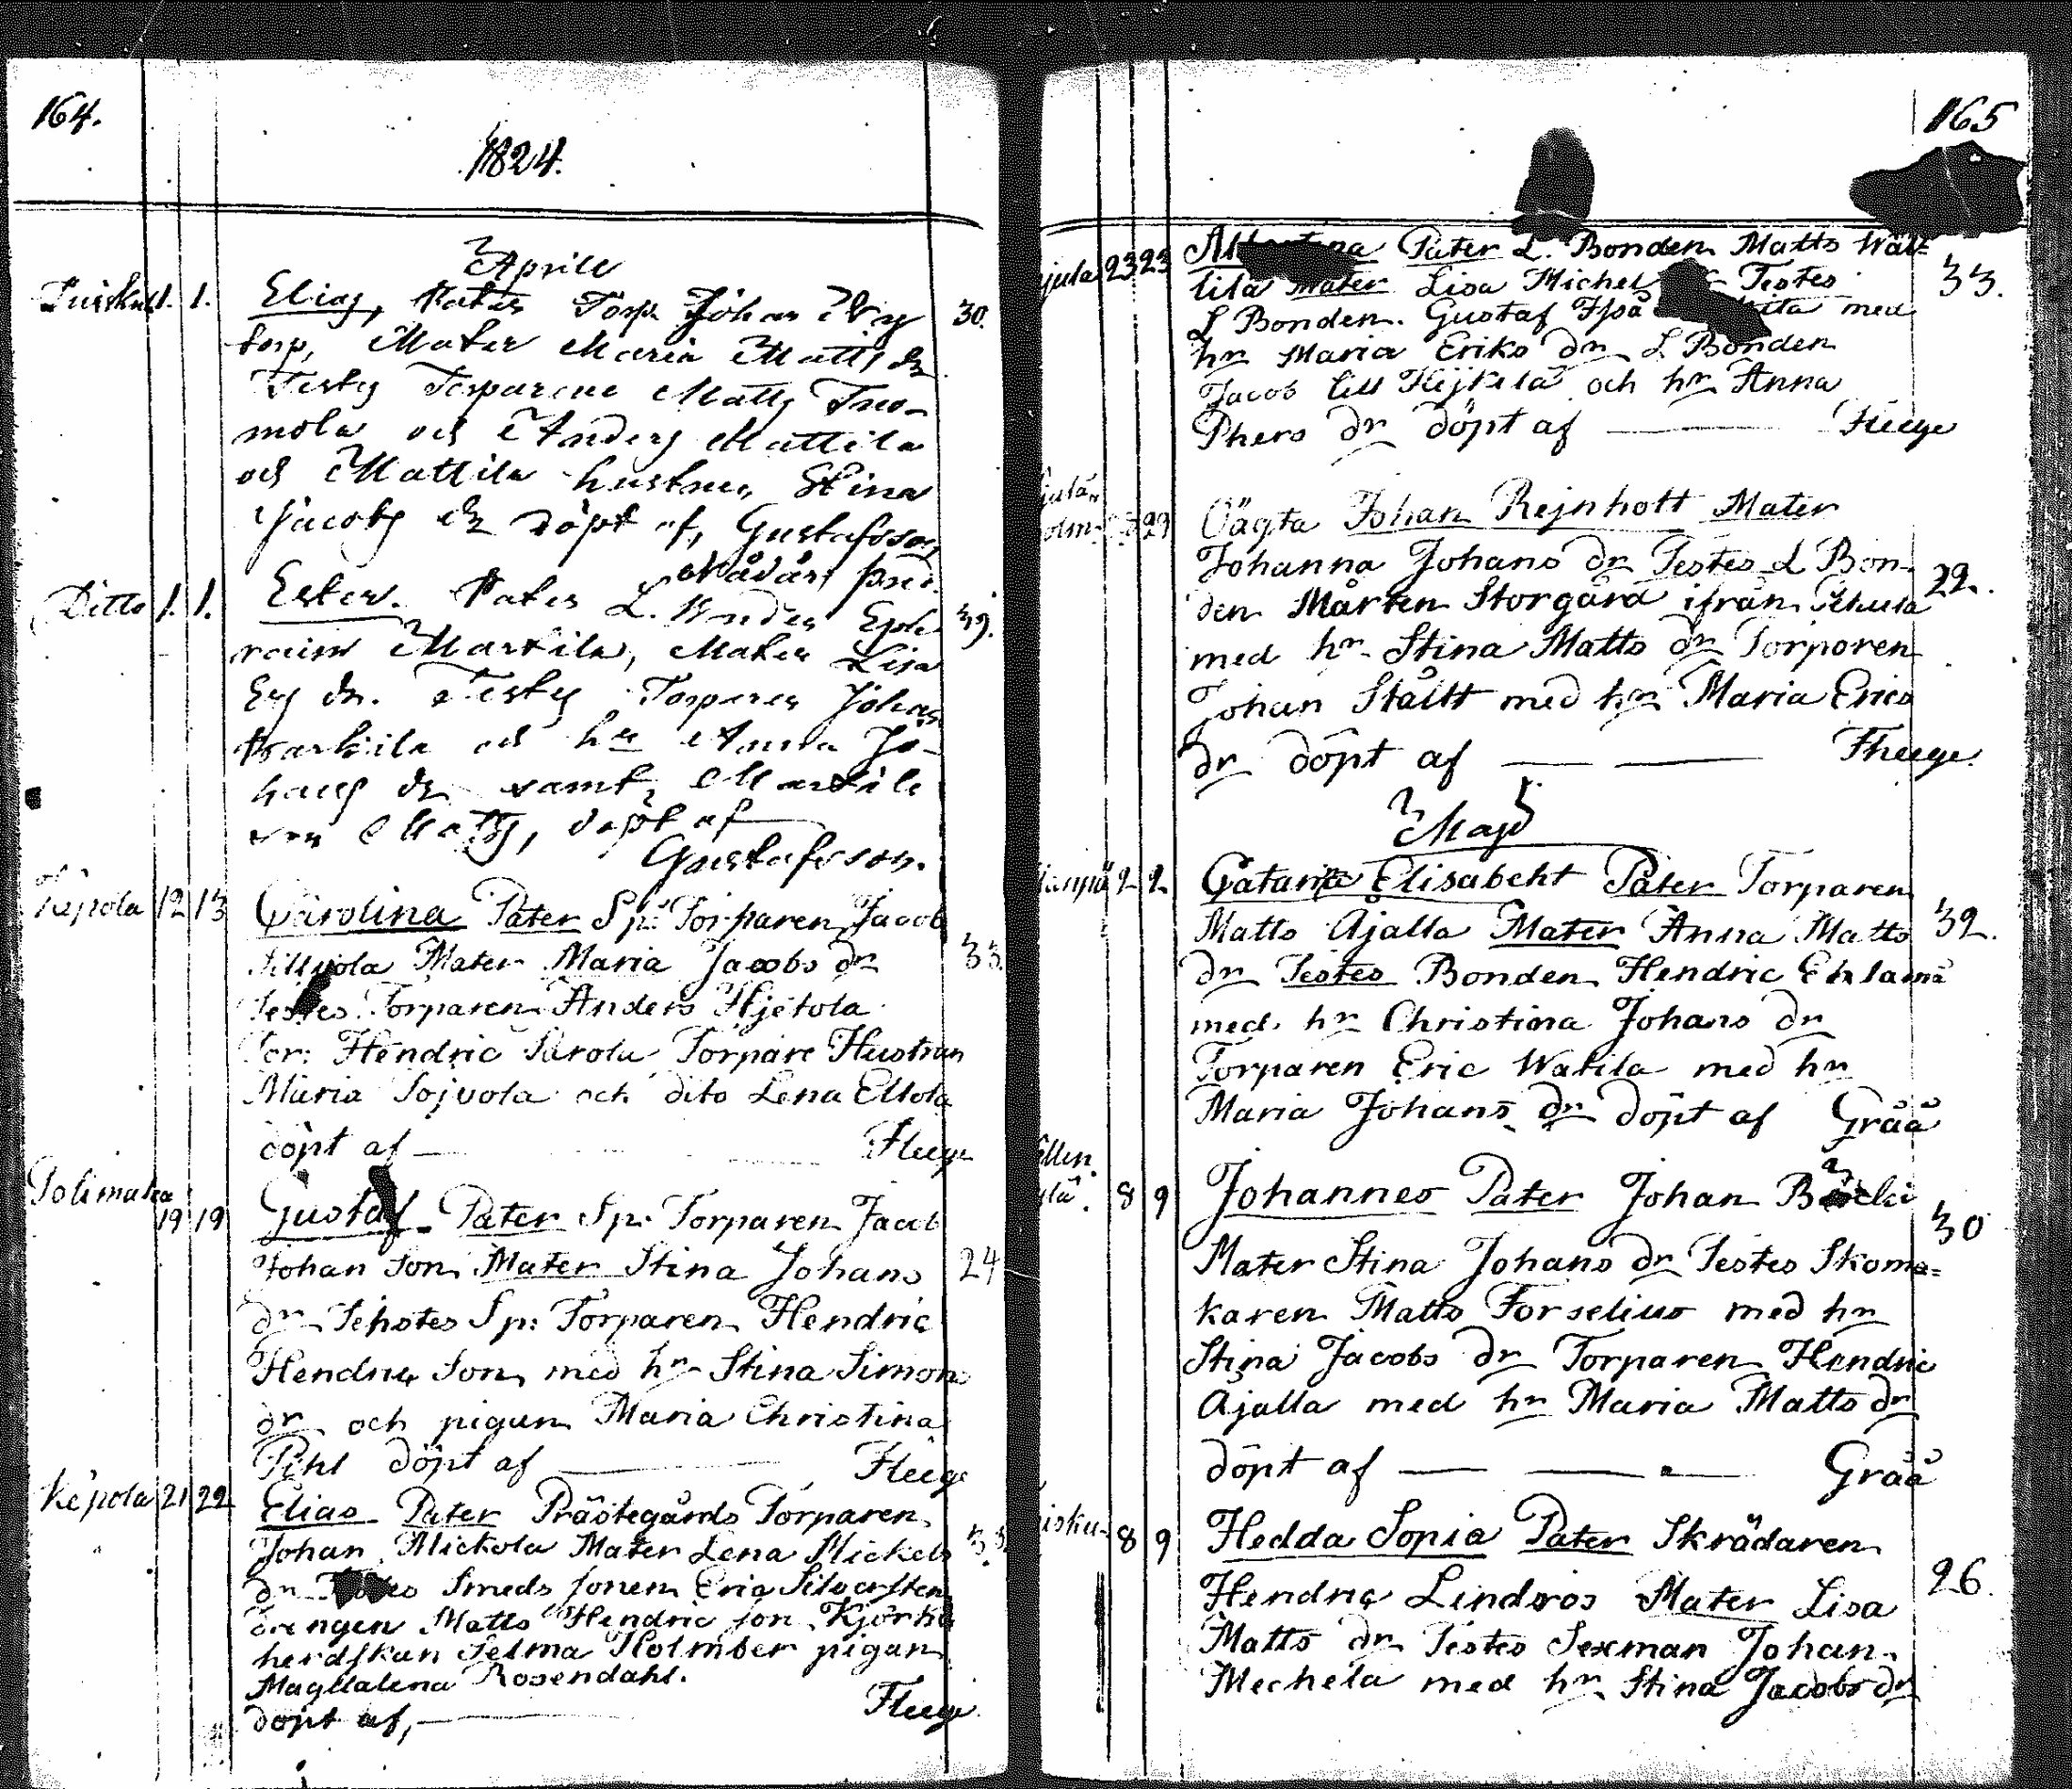 164.
1824.
Aprill
1. 1. Elias, Pater Torp. Johan Ny 30.
torp, Mater Maria Matts dr
Testes Torparene Matts Tuo-
mola och Anders Mattila
och Mattila hustrun Stina
Jacobs dr döpt af, Gustafsson
Ditto 1. 1. Ester. Pater L. Bonden Eph- 39.
raim Markila, Mater Lisa
Ers dr. Testes Torparen Johan
och hu Anna Jo-
hans dr samt
Matts, döpt af
Gustafsson.
Kepola 12 13 Carolina Pater Sp: Torparen Jacob
Mater Maria Jacobs dr 33.
Testes Torparen Anders Hjetola
Hendric Torpare Hustrun
Maria Sojvola och dito Lena Ellola
döpt af Fleege
19 19 Gustaf Pater Sp: Torparen Jacob
Johan Son Mater Stina Johans 24
dr Tehstes Sp: Torparen Hendric
Hendric Son med hn Stina Simons
dr och pigan Maria Christina
Pihl döpt af Fleege
Kepola 21 22 Elias Pater Prästegårds Torparen
Johan Mickola Mater Lena Mickels 33.
dr Smeds sonen Eric
drengen Matts Hendric son
Selma Holmber pigan
Magllalena Rosendahl.
döpt af, Fleege
165
23 23 Pater L. Bonden Matts Wäl-
lila Mater Lisa Michel Testes 33.
L Bonden. Gustaf med
hn Maria Eriks dn L Bonden
Jacob Lill Heikela och hn Anna
Phers dr döpt af Fleege
23 Oägta Johan Rejnholt Mater
Johanna Johans dr Testes L Bon-
den Mårten Storgård ifrån 22.
med hn Stina Matts dr Torporen
Johan Stållt med hn Maria Erics
dr döpt af Fheege
Maji
2 2 Catarita Elisabeht Pater Torparen
Matts Äjalla Mater Anna Matts 32.
dr Testes Bonden Hendric
med hn Christina Johans dr
Torparen Eric Watila med hn
Maria Johans dr döpt af Gråå
8 9 Johannes Pater Johan
30
Mater Stina Johans dr Testes Skoma=
karen Matts Forselius med hn
Stina Jacobs dr Torparen Hendric
Äjalla med hn Maria Matts dr
döpt af Gråå
8 9 Hedda Sopia Pater Skrädaren
Hendric Lindros Mater Lisa 26.
Matts dr Testes Sexman Johan
Mechela med hn Stina Jacobs dr